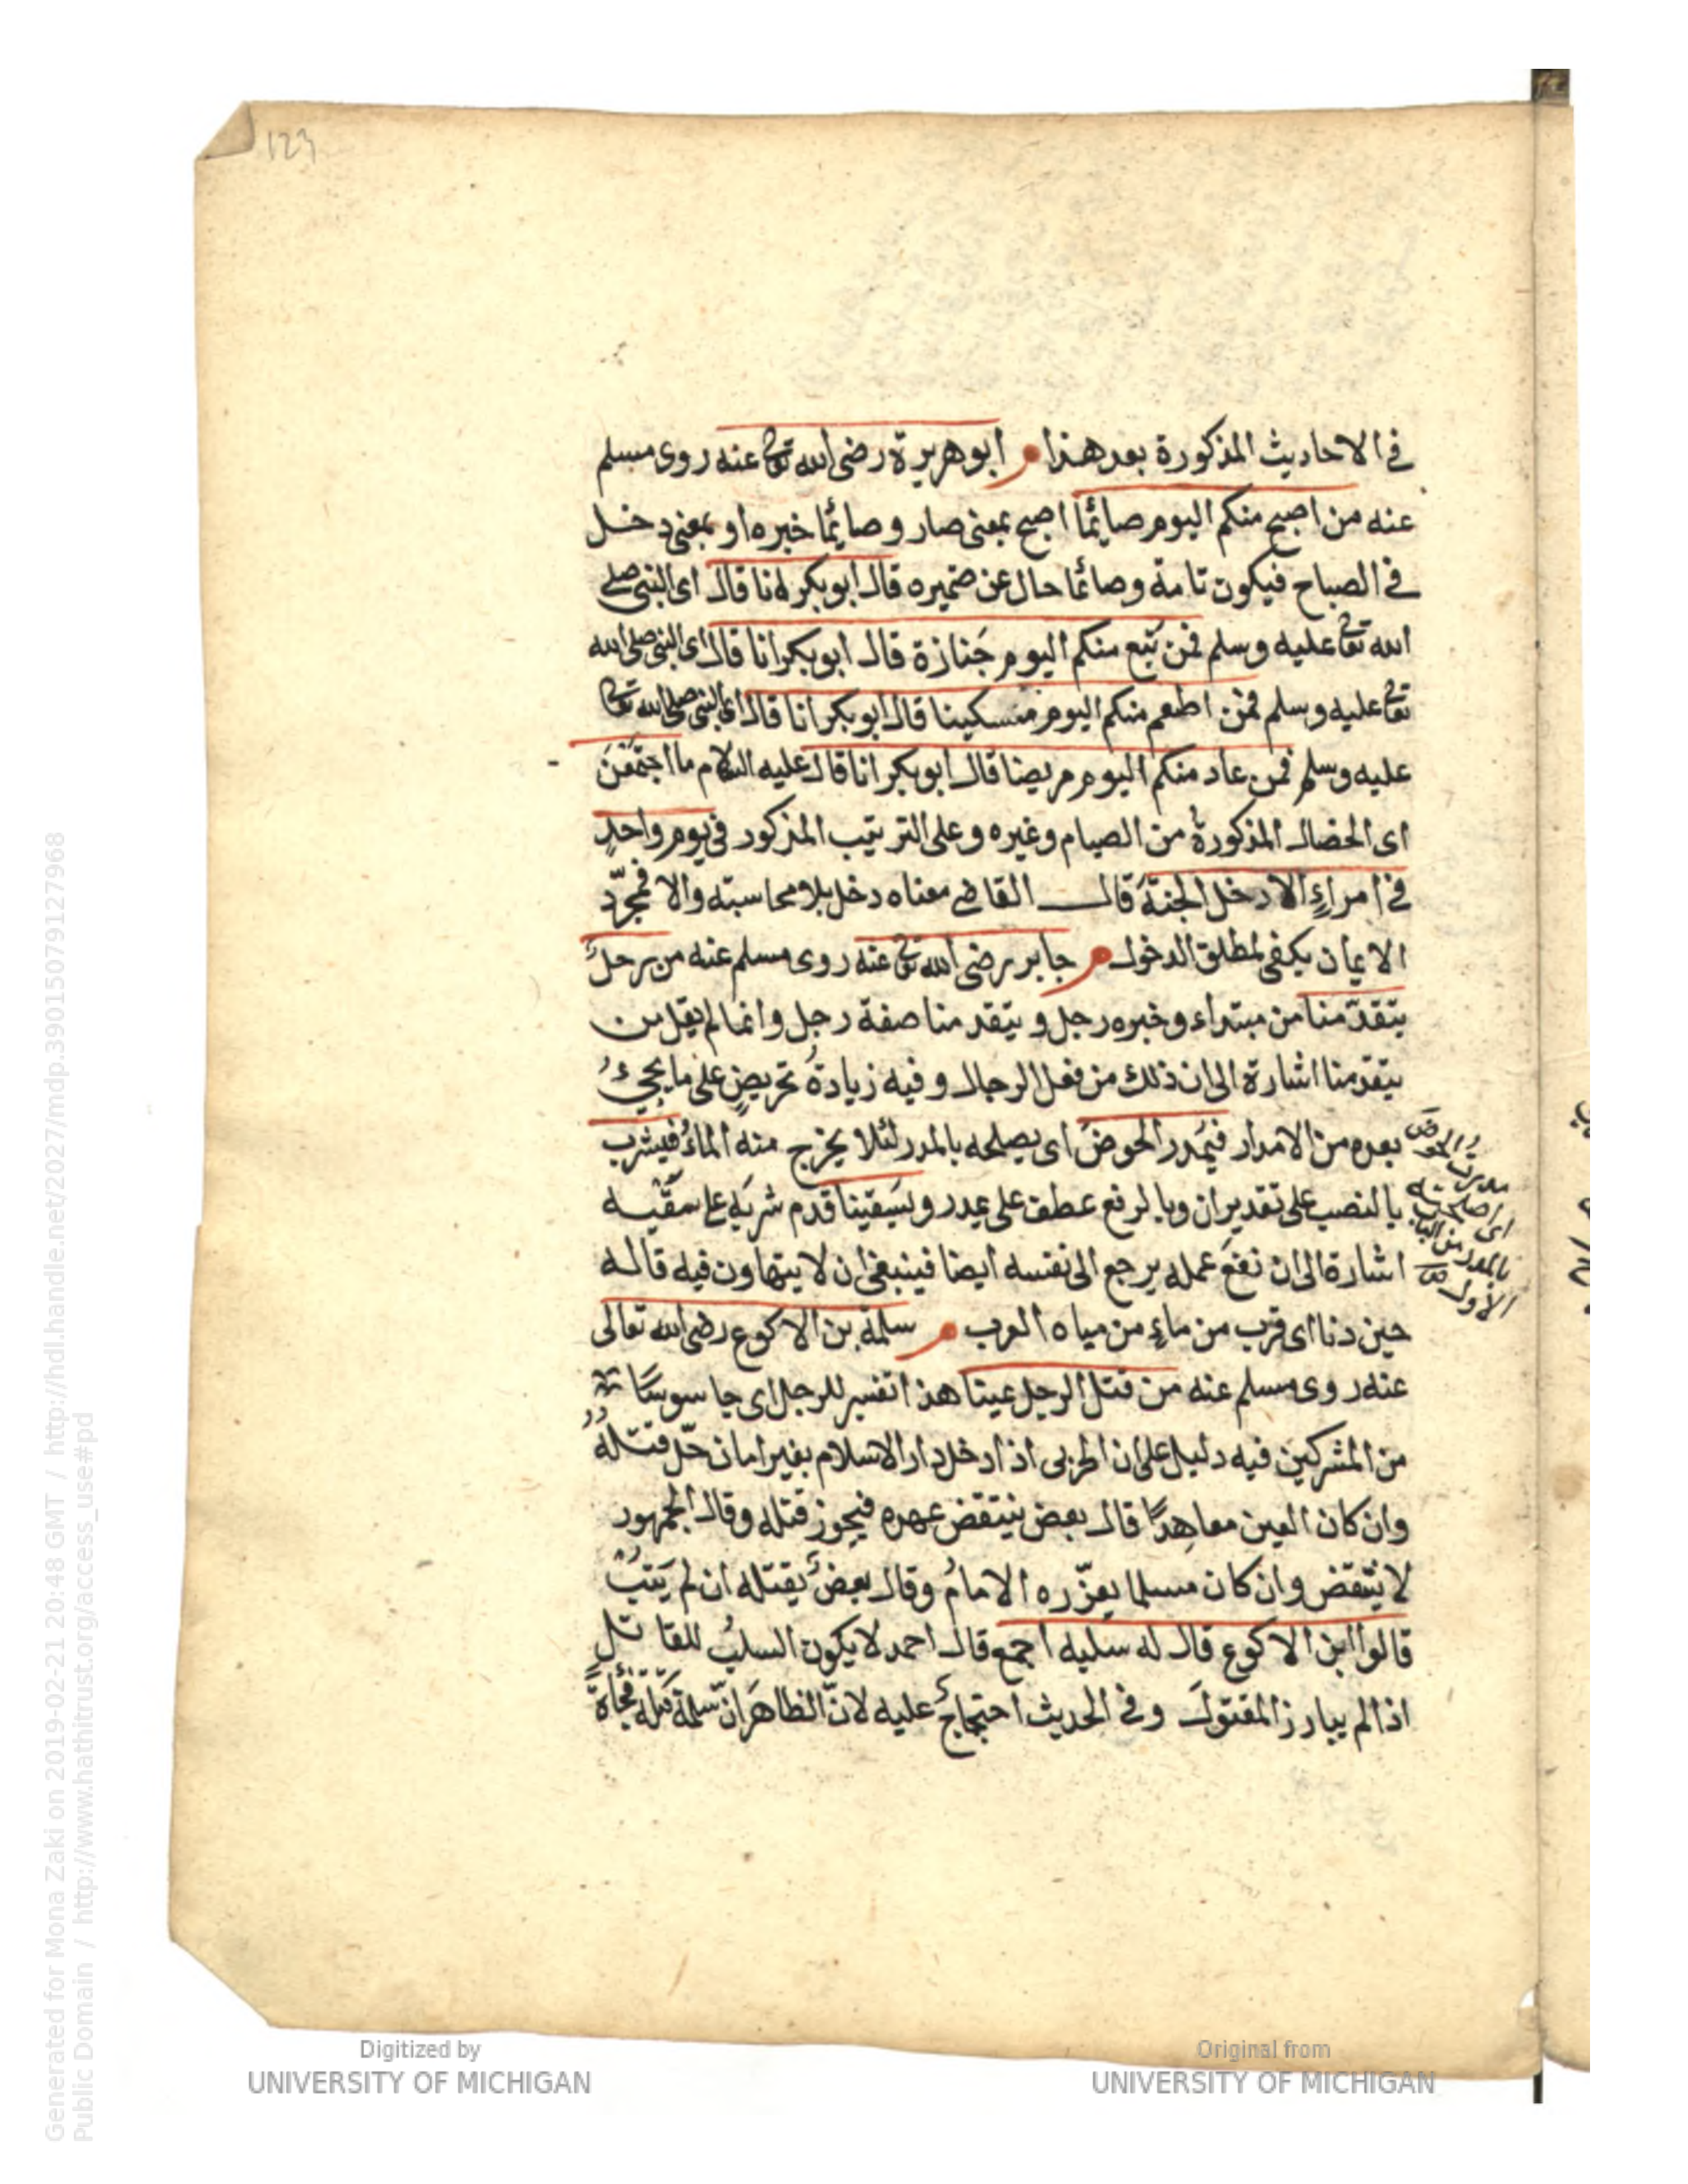 123
في الاحاديث المذكورة بعد هذا ابو هريرة رضى الله تعا عنه روى مسلم
عنه من اصبح منكم اليوم صائما اصبح بمعنى صار وصائما خبره او بمعنى دخل
في الصباح فيكون تامة وصائما حال عن ضميره قال ابو بكر انا قال اى النبى صلى
الله تعا عليه وسلم فمن تبع منكم اليوم جنازة قال ابو بكر انا قال اى النبى صلى الله
تعا عليه وسلم فمن اطعم منكم اليوم مسكينا قال ابو بكر انا قال اى النبى صلى الله تعا
عليه وسلم فمن عاد منكم اليوم مريضا قال ابو بكر انا قال عليه السلام ما اجتمعن
اى الخصال المذكورة من الصيام وغيره وعلى الترتيب المذكور في يوم واحد
في امراء الا دخل الجنة قال القاضي معناه دخل بلا محاسبته والا فمجرد
الايمان يكفى لمطلق الدخول جابر رضى الله تعا عنه روى مسلم عنه من رجل
يتقدمنا من مبتداء وخبره رجل ويتقدمنا صفة رجل وانما لم يقل من
يتقدمنا اشارة الى ان ذلك من فعل الرجال وفيه زيادة تحريض على ما يجئ
بعده من الامدار فيمدر الحوض اى يصلحه بالمدر لئلا يخرج منه الماء فيشرب
بالنصب على تقدير ان وبالرفع عطف على يمدر ويسقينا قدم شربه على سقيه
اشارة الى ان نفع عمله يرجع الى نفسه ايضا فينبغى ان لا يتهاون فيه قاله
حين دنا اى قرب من ماء من مياه العرب سلمة بن الاكوع رضى الله تعالى
عنه روى مسلم عنه من قتل الرجل عينا هذا تفسير للرجل اى جاسوسا
من المشركين فيه دليل على ان الحربى اذا دخل دار الاسلام بغير امان حل قتله
وان كان العين معاهدا قال بعض ينتقض عهده فيجوز قتله وقال الجمهور
لا ينتقض وان كان مسلما يعزره الامام وقال بعض يقتله ان لم يتب
قالوا ابن الاكوع قال له سلبه اجمع قال احمد لا يكون السلب للقاتل
اذا لم يبارز المقتول وفي الحديث احتجاج عليه لان الظاهر ان سلمة قتله فجاة
مدرت الحوض
اى اصلحته
بالمدر من الباب
الاول
Generated for Mona Zaki on 2019-02-21 20:48 GMT / http://hdl.handle.net/2027/mdp.39015079127968
Public Domain / http://www.hathitrust.org/access_use#pd
Digitized by
UNIVERSITY OF MICHIGAN
Original from
UNIVERSITY OF MICHIGAN